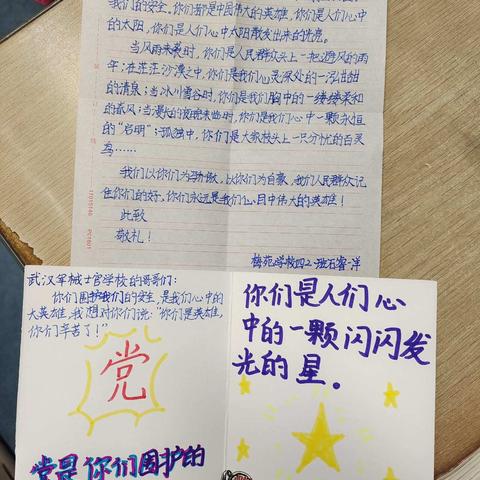 我们的安全。你们都是中国伟大的英雄，你们是人们心中
的太阳，你们是人们心中太阳散发出来的光亮。
当风雨来袭时，你们是人民群众头上一把避风的雨
伞；在茫茫沙漠之中，你们是我们心灵深处的一泻甜甜
的清泉；当冰川雪谷时，你们是我们胸中的一缕缕柔和
的春风；当漫长的夜晚来临时，你们是我们心中一颗永恒
的“启明”；孤独中，你们是大家枝头上一只分忧的百灵
鸟……
我们以你们为骄傲，以你们为自豪，我们人民群众记
住你们的好，你们永远是我们心目中伟大的英雄！
此致
敬礼！
梅苑学校四2班石睿洋
武汉军械士官学校的哥哥们：
你们围护我们的安全，是我们心中的
大英雄，我想对你们说：“你们是英雄，
你们辛苦了！”
党
党是你们围护的
你们是人们心
中的一颗闪闪发
光的星。